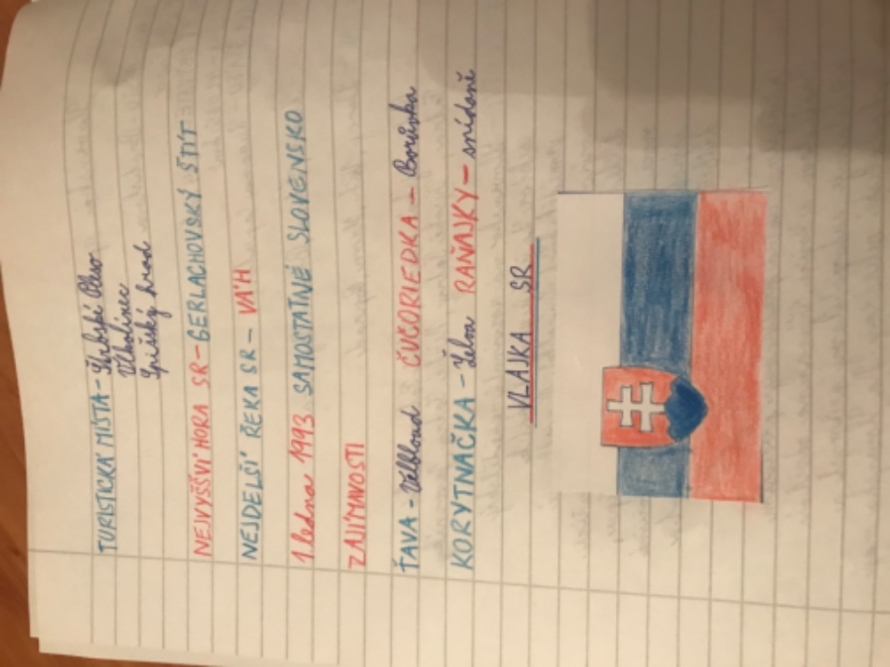 TURISTICKÁ MÍSTA - Štrbské Pleso
Vlkolínec
Spišský hrad
NEJVYŠŠVÍ HORA SR - GERLACHOVSKÝ ŠTÍT
NEJDELŠÍ ŘEKA SR - VÁH
1. ledna 1993 SAMOSTATNÉ SLOVENSKO
ZAJÍMAVOSTI
ŤAVA - Velbloud ČUČORIEDKA - Borůvka
KORYTNAČKA - želva RAŇAJKY - snídaně
VLAJKA SR